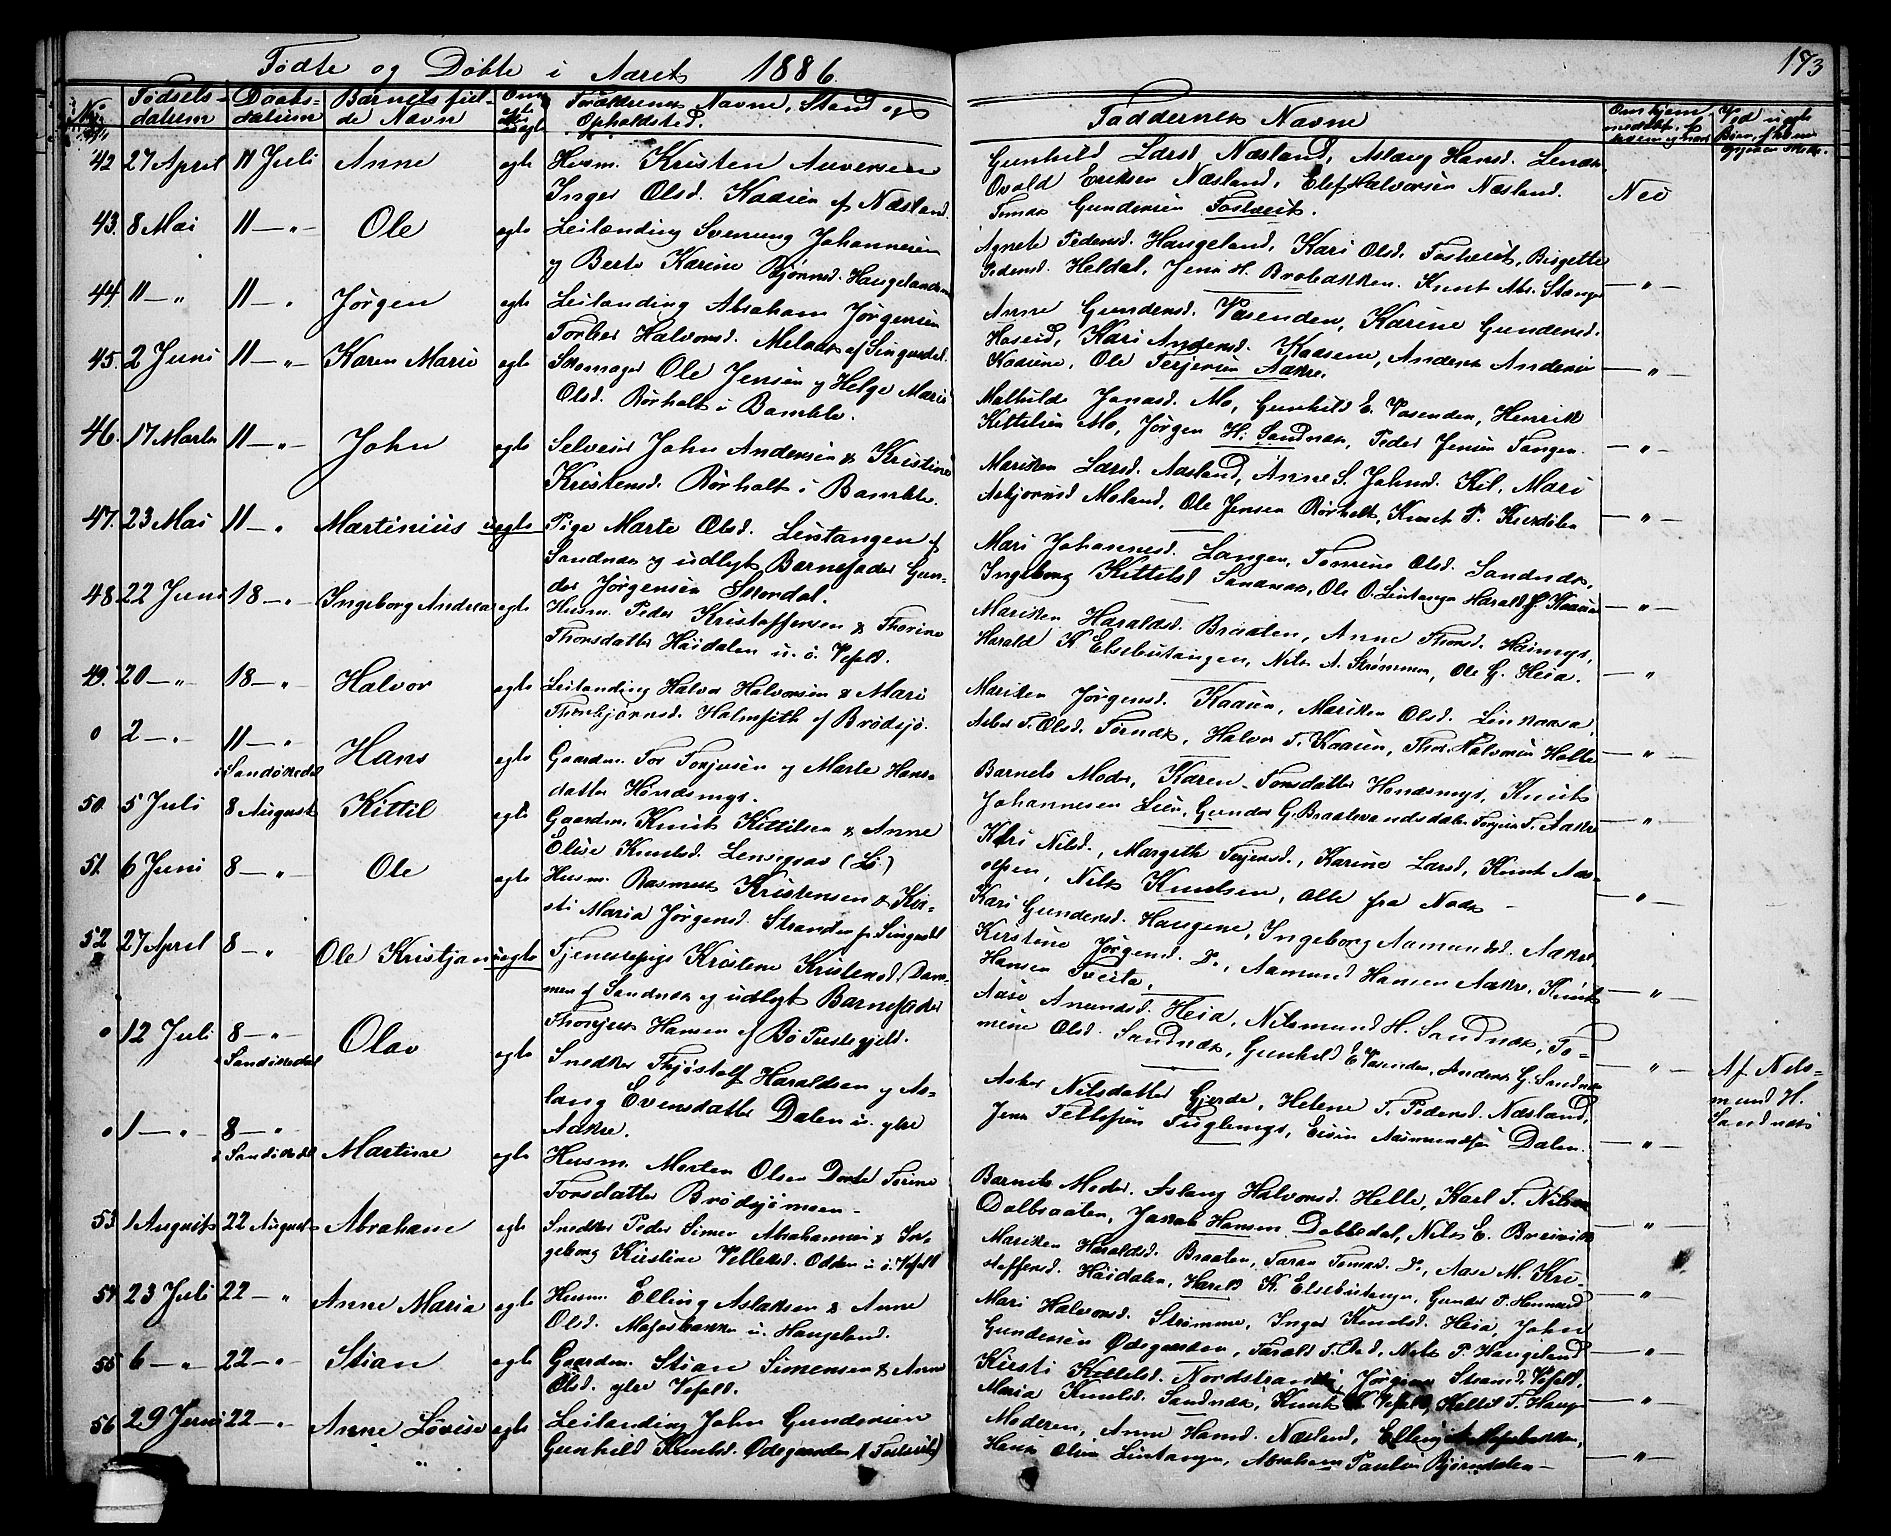 Fødte og Døbte i Aaret 1886.
173
No
Fødsels-
datum
Daabs-
datum
Barnets ful-
de Navn
Om
egte
uegte
Forældrenes Navne, Stand og
Opholdsted.
Faddernes Navne
42 27 April 11 Juli Anne egte Husm. Kristen Auversen
Inger Olsd. Kaasen af Næsland.
Gunhild Larsd. Næsland, Aslaug Hansd.
Ovald Eriksen Næsland, Elef Halvorsen Næsland.
Tomas Gundersen Fostveit.
Nei
43. 8 Mai 11 — " Ole egte Leilænding Svenung Johannesen
og Berte Karine Bjørnsd. Haugelands
Agnete Pedersd. Haugeland, Kari Olsd. Fostveit, Birgette
Pedersd. Heldal, Jens H. Brobakken. Knut Abr. Stange
— " —
44. 11 — " 11 — " Jørgen egte Leilænding Abraham Jørgensen
Torber Halvorsd. Melaas af Singusdal.
Anne Gundersd. Vasenden, Karine Gundersd.
Haseid, Kari Andersd. Kaasene, Anders Andersen
Kaasene, Ole Terjesen Aakre.
— " —
45. 2 Juni 11 — " Karen Marie egte Skomager Ole Jensen og Helge Marie
Olsd. Rørholt i Bamble.
Mathilde Jonasd. Mo, Gunhild E. Vasenden, Henrik
Kittelsen Mo, Jørgen H. Sandnæs, Peder Jensen Tangen.
— " —
46. 17 Marts 11 — " John egte Selveier John Andersen & Kristine
Kristensd. Rørholt i Bamble.
Mariken Larsd. Aasland, Anne S. Johnsd. Kil, Mari
Asbjørnsd. Moland, Ole Jensen Rørholt, Knut P.
— " —
47. 23 Mai 11 — " Martinius uegte Pige Marte Olsd. Lintangen af
Sandnæs og udlagt Barnefader Gun-
der Jørgensen Skordal.
Mari Johannesd. Langen, Tomine Olsd. Sandnæs,
Ingeborg Kittelsd. Sandnæs, Ole O. Lintangen Harald J. Kaasen
— " —
48 22 Juni 18 — " Ingeborg Andrea egte Husm. Peder Kristoffersen & Thorine
Thorsdatter Høidalen u. ö. Vefald.
Mariken Haraldsd. Braaten, Anne Thorsd. Heimys,
Harald K Elsebutangen, Nils A. Strømmen, Ole G. Heia.
— " —
49. 20 — " 18 — " Halvor egte Leilænding Halvor Halvorsen & Mari
Thorbjørnsd. Holmfith af Brødsjø.
Mariken Jørgensd. Kaasen, Mariken Olsd. Linkaasa
Asber T. Olsd. Tornæs, Halvor T. Kaasen, Thor Halvorsen Holte
— " —
0 2 — " 11 — " i Sandøkedal Hans egte Gaardm. Tor Torjusen og Marte Hans-
datter Høndsmyr.
Barnets Moder, Karen Torsdatter Høndsmyr, Knut
Johannesen Lien, Gunder G. Braatevandsdalen Torjus T. Aakre
— " —
50. 5 Juli 8 August Kittil egte Gaardm. Knut Kittilsen & Anne
Elise Knutsd. Lensgrav (Lö)
Kari Nilsd., Margith Terjesd., Karine Larsd, Knut Aas-
olsen, Nils Knudsen, alle fra Næs —
— " —
51. 6 Juni 8 — " Ole egte Husm. Rasmus Kristensen & Kir-
sti Maria Jørgensd. Stranden af Singusdal
Kari Gundersd. Haugene, Ingeborg Aamundsd. Aakre,
Kirstine Jørgensd. Do, Aamund Hansen Aakre, Knut
Hansen Tveita.
— " —
52 27 April 8 — " Ole Kristjan uegte Tjenestepige Kristine Kristensd. Dam-
men af Sandnæs og udlagt Barnefader
Thorjus Hansen af Bø Prestegjeld.
Aase Anundsd. Heia, Nilsmund H. Sandnæs, To-
mine Olsd. Sandnæs, Gunhild E. Vasenden, Anders G. Sandnæs
— " —
Af Nils-
mund H.
Sandnæs
0 12 Juli 8 — " i Sandøkedal Olav egte Snedker Thjøstolf Haraldsen og As-
laug Evensdatter Dalen u. ytre
Aakre.
Asber Nilsdatter Gjerde, Helene T. Pedersd. Næsland,
Jens Tellefsen Fuglemyr, Even Aasmundsen Dalen.
— " —
0 1 — " 8 — " i Sandøkedal Martine egte Husm. Morten Olsen Dorte Torine
Torsdatter Brødsjømoen —
Barnets Moder. Aslaug Halvorsd. Helle, Karl T. Nilsen
Dalbraaten, Jakob Hansen Dobbedal, Nils E. Breivik
— " —
53 1 August 22 August Abraham egte Snedker Peder Simon Abrahamsen & In-
geborg Kirstine Velleksd. Odden u. ö. Vefald
Mariken Haraldsd. Braaten, Taran Tomasd. Do, Aase M. Kri-
stoffersd. Høidalen, Harald K. Elsebutangen, Gunder P.
— " —
54 23 Juli 22 — " Anne Maria egte Husm. Elling Aslaksen & Anne
Olsd. Mofosbakke u. Haugeland.
Mari Halvorsd. Strømme, Inger Knudsd. Heia, John
Gundersen Ødegaarden, Tarald T. Nils P. Haugeland
— " —
55 6 — " 22 — " Stian egte Gaardm. Stian Simensen & Anne
Olsd. ytre Vefald.
Kirsti Kittilsd. Nordstrand, Jørgine Strand, Vefald,
Maria Knutsd. Sandnæs, Knut Vefald, Kittel T. Hauge
— " —
56 29 Juni 22 — " Anne Lovise egte Leilænding John Gundersen
Gunhild Knutsd. Ødegaarden (Fostveit)
Moderen, Anne Hansd. Næsland, Elling
Hans Olsen Lintangen, Abraham Paulsen Bjørndalen —
— " —